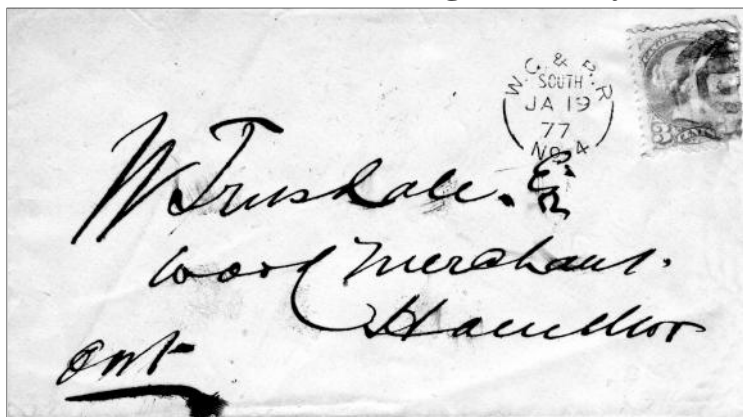 W. G. & B. R
SOUTH
JA 19
77
No. 4
3 CENTS
W Trusdale. Esq
Wood Merchant.
Hamilton
Ont